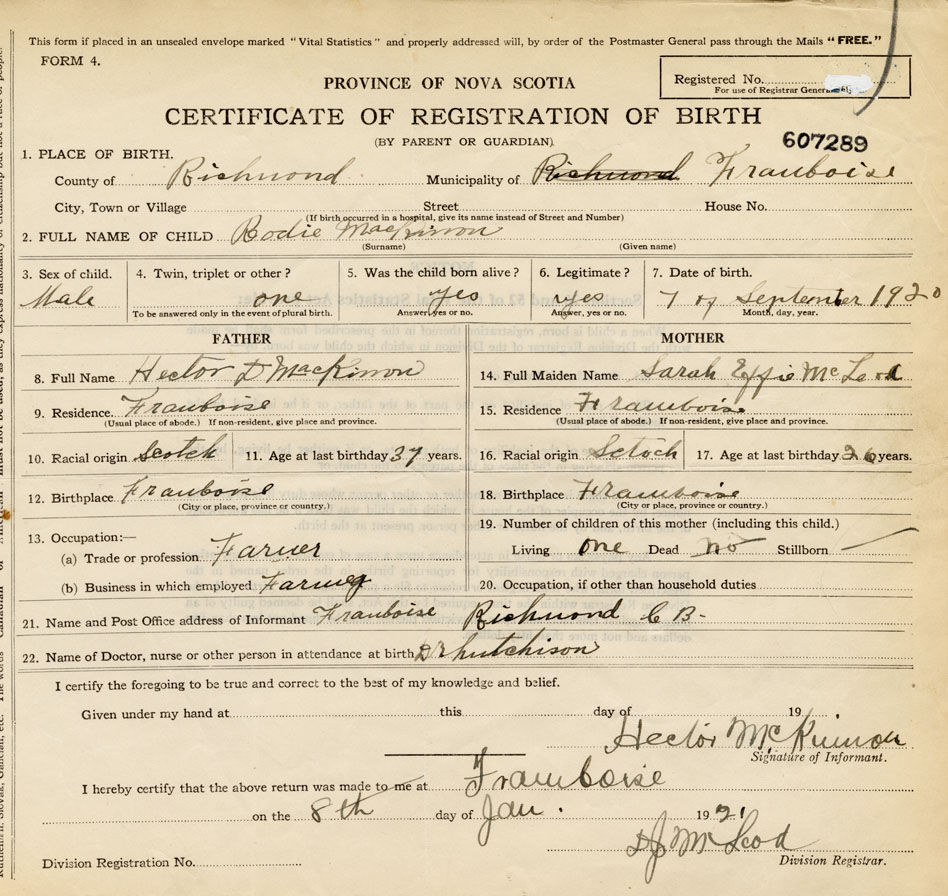 This form if placed in an unsealed envelope marked "Vital Statistics" and properly addressed will, by order of the Postmaster General pass through the Mails "FREE."
FORM 4.
PROVINCE OF NOVA SCOTIA
Registered No.
For use of Registrar General
CERTIFICATE OF REGISTRATION OF BIRTH
(BY PARENT OR GUARDIAN)
607289
1. PLACE OF BIRTH.
County of Richmond Municipality of Richmond Framboise
City, Town or Village Street House No.
(If birth occurred in a hospital, give its name instead of Street and Number)
2. FULL NAME OF CHILD Rodie MacKinnon
(Surname) (Given name)
3. Sex of child. 4. Twin, triplet or other? 5. Was the child born alive? 6. Legitimate? 7. Date of birth.
Male one yes yes 7 of September 1920
To be answered only in the event of plural birth. Answer, yes or no. Answer, yes or no. Month, day, year.
FATHER MOTHER
8. Full Name Hector D MacKinnon 14. Full Maiden Name Sarah Effie McLeod
9. Residence. Framboise 15. Residence Framboise
(Usual place of abode.) If non-resident, give place and province. (Usual place of abode.) If non-resident, give place and province.
10. Racial origin Scotch 11. Age at last birthday 37 years. 16. Racial origin Sctoch 17. Age at last birthday 26 years.
12. Birthplace Framboise 18. Birthplace Framboise
(City or place, province or country.) (City or place, province or country.)
13. Occupation:— 19. Number of children of this mother (including this child.)
(a) Trade or profession Farmer Living one Dead no Stillborn
(b) Business in which employed Farmeg 20. Occupation, if other than household duties
21. Name and Post Office address of Informant Framboise Richmond C B-
22. Name of Doctor, nurse or other person in attendance at birth Dr hutchison
I certify the foregoing to be true and correct to the best of my knowledge and belief.
Given under my hand at this day of 19
Hector McKinnon
Signature of Informant.
I hereby certify that the above return was made to me at Framboise
on the 8th day of Jan. 1921
DJ McLeod
Division Registration No. Division Registrar.